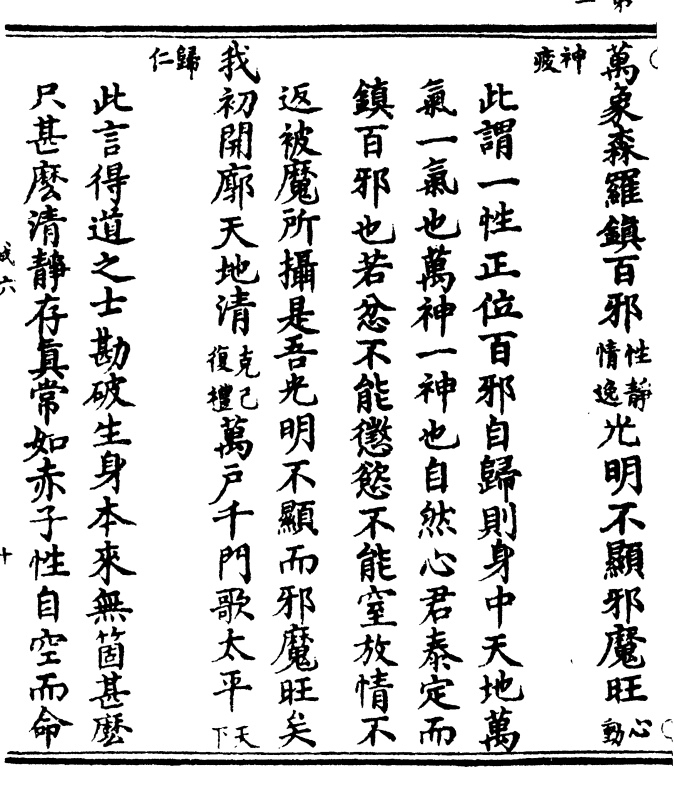 萬象森羅鎮百邪性靜情逸光明不顯邪魔旺心動
神疲
此謂一性正位百邪自歸則身中天地萬
氣一氣也萬神一神也自然心君泰定而
鎮百邪也若忿不能懲慾不能窒放情不
返被魔所攝是吾光明不顯而邪魔旺矣
我初開廓天地清克己復禮萬戶千門歌太平天下
歸仁
此言得道之士勘破生身本來無箇甚麼
只甚麼清靜存眞常如赤子性自空而命